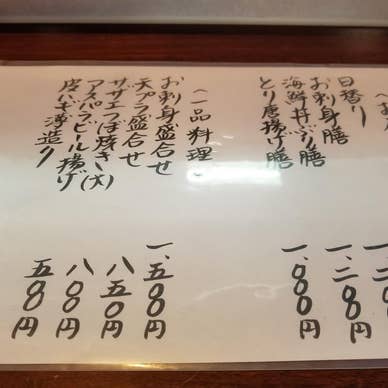 日替り
お刺身膳
海鮮丼ぶり膳
とり唐揚げ膳
一、二〇〇円
一、〇〇〇円
〈一品料理〉
お刺身盛合せ
天プラ盛合せ
サザエつぼ焼き(大)
アスパラビール揚げ
皮ハギ薄造り
一、五〇〇円
八五〇円
八〇〇円
五〇〇円